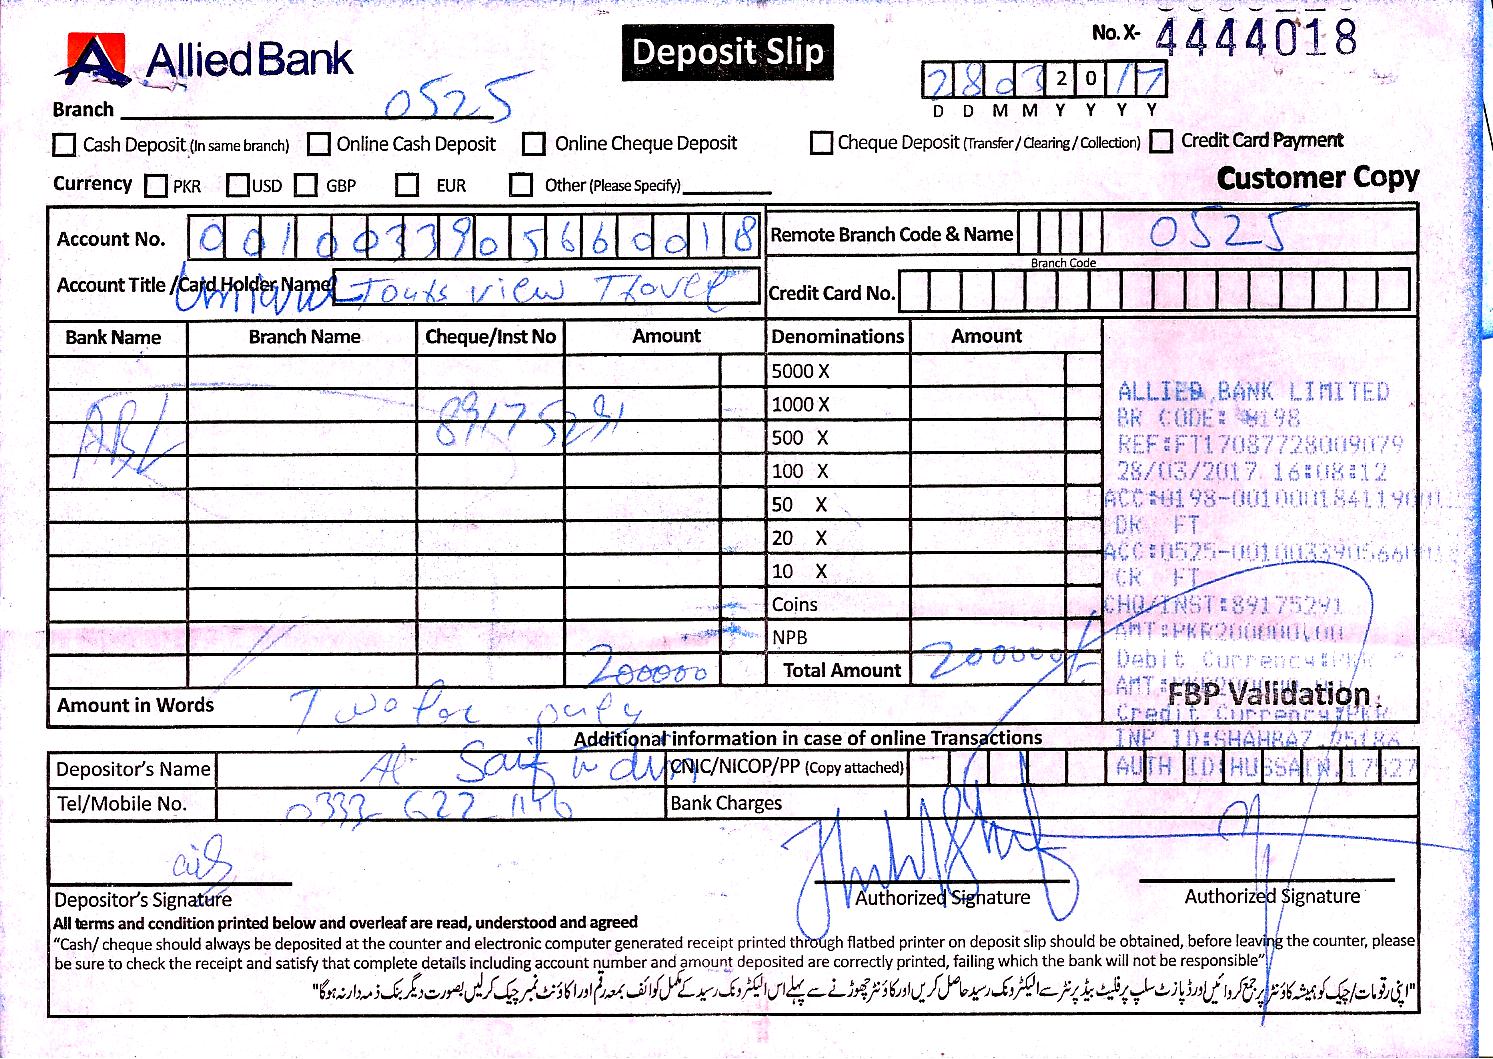 Allied Bank
Deposit Slip
No.X- 4444018
28032017
D D M M Y Y Y Y
Branch 0525
Cash Deposit (In same branch) Online Cash Deposit Online Cheque Deposit Cheque Deposit (Transfer/Clearing/Collection) Credit Card Payment
Currency PKR USD GBP EUR Other (Please Specify)
Customer Copy
Account No. 0010033905660018
Remote Branch Code & Name 0525
Branch Code
Account Title /Card Holder Name view Travel
Credit Card No.
Bank Name Branch Name Cheque/Inst No Amount
Denominations Amount
5000 X
1000 X
500 X
100 X
50 X
20 X
10 X
Coins
NPB
ABL 89175291
200000
Total Amount 200000/-
ALLIED BANK LIMITED
BR CODE: 0198
REF:FT17087728009079
28/03/2017 16:08:12
ACC:0198-0010001841190
DR FT
ACC:0525-00100339056600
CR FT
CHQ/INST:89175291
AMT:PKR200000.00
Debit Currency:PKR
AMT:
FBP Validation
Credit Currency:PKR
INP ID:SHAHRAZ
AUTH ID:HUSSAIN.17527
Amount in Words Two lac only
Additional information in case of online Transactions
Depositor's Name Al Saif
CNIC/NICOP/PP (Copy attached)
Tel/Mobile No. 0333-622 1146
Bank Charges
Depositor's Signature
Authorized Signature
Authorized Signature
All terms and condition printed below and overleaf are read, understood and agreed
"Cash/ cheque should always be deposited at the counter and electronic computer generated receipt printed through flatbed printer on deposit slip should be obtained, before leaving the counter, please
be sure to check the receipt and satisfy that complete details including account number and amount deposited are correctly printed, failing which the bank will not be responsible"
"اپنی رقومات/چیک کو ہمیشہ کاؤنٹر پر جمع کروائیں اور ڈپازٹ سلپ پر فلیٹ بیڈ پرنٹر سے الیکٹرونک رسید حاصل کریں اور کاؤنٹر چھوڑنے سے پہلے اس الیکٹرونک رسید کے مکمل کوائف بمعہ رقم اور اکاؤنٹ نمبر چیک کرلیں بصورت دیگر بنک ذمہ دار نہ ہوگا"